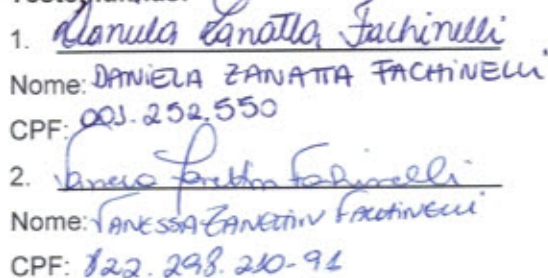 1. Daniela Zanatta Fachinelli
Nome: DANIELA ZANATTA FACHINELLI
CPF: 001.252.550
2. Vanessa Fachinelli
Nome: VANESSA ZANETTIN FACHINELLI
CPF: 822.298.210-91